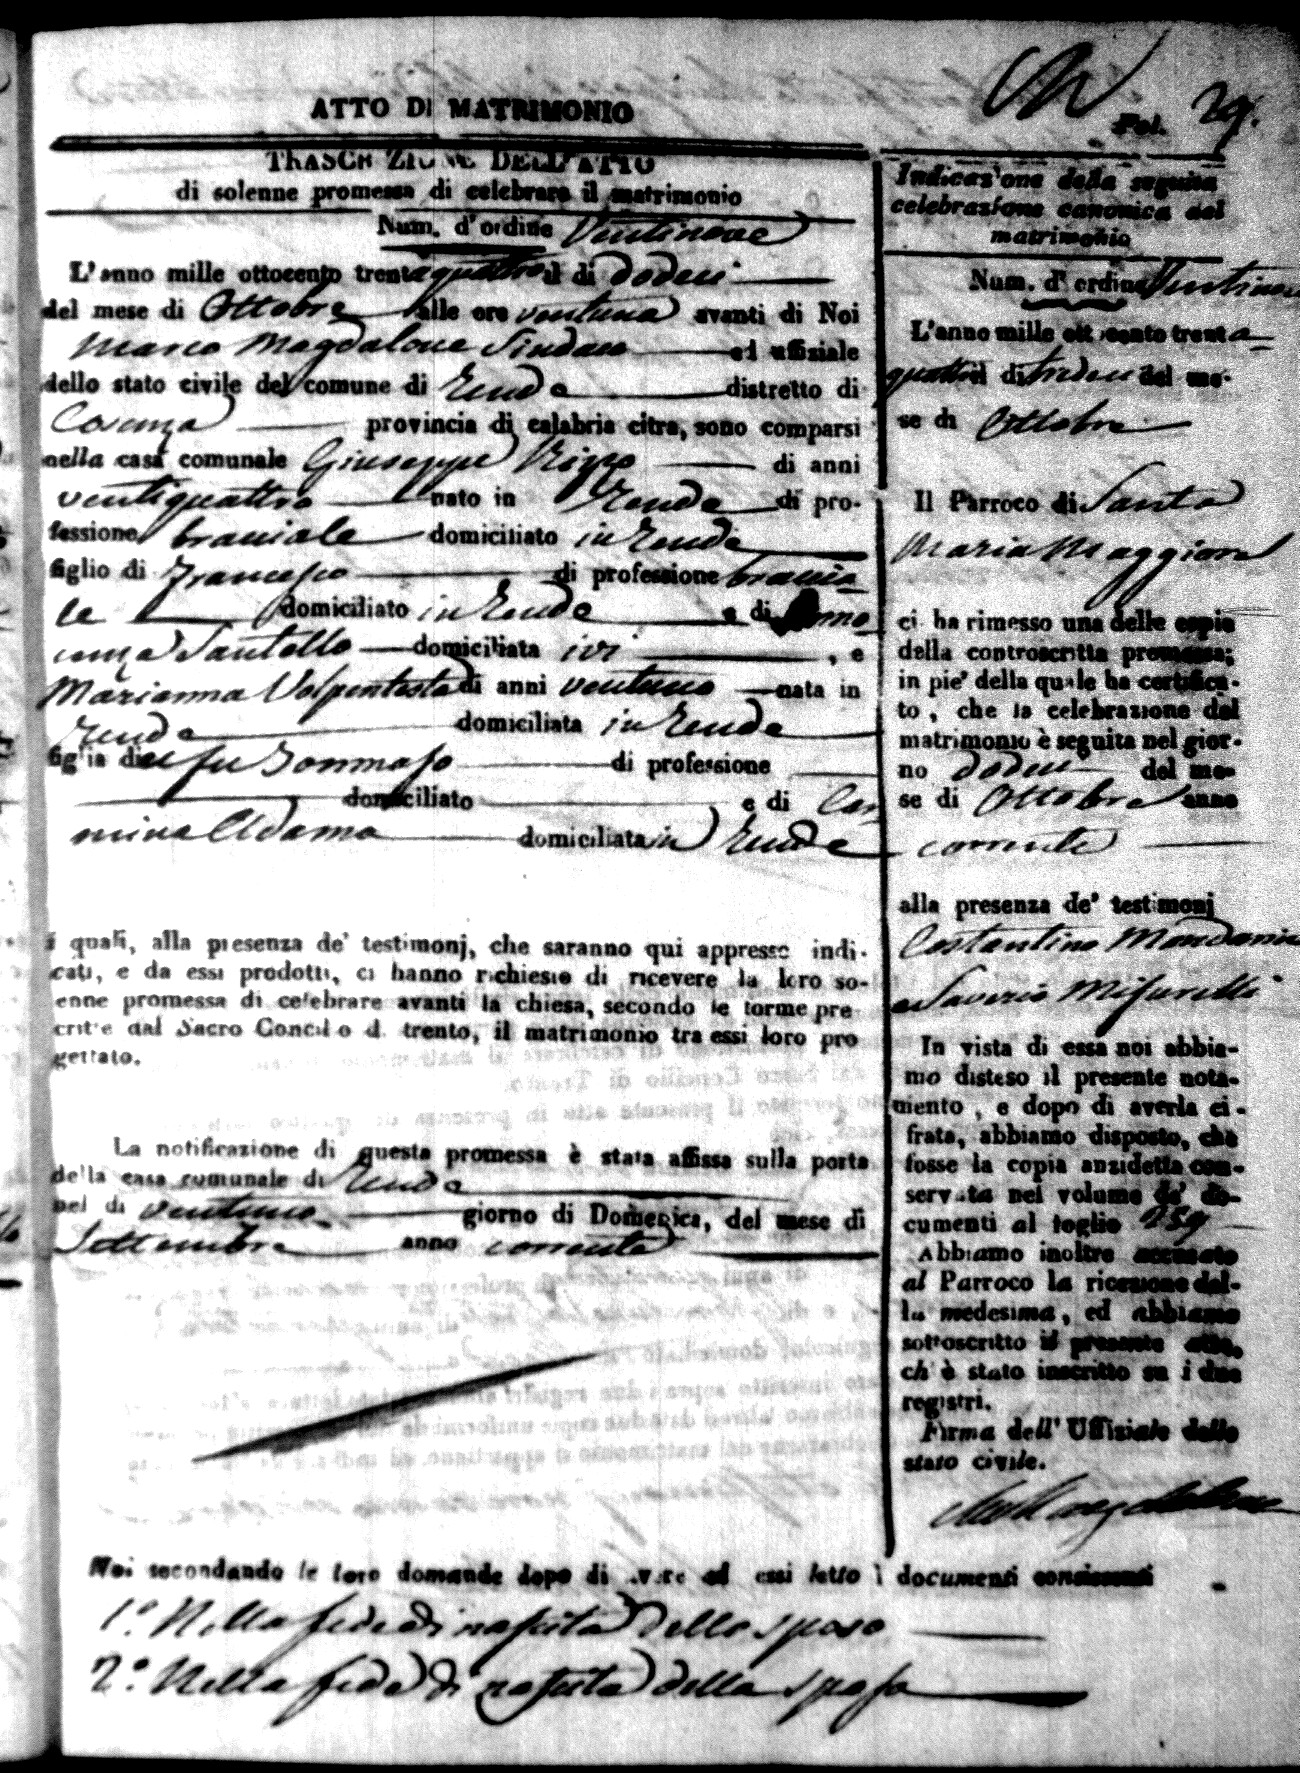 Fol. 29.
ATTO DI MATRIMONIO
TRASCRIZIONE DELL'ATTO
di solenne promessa di celebrare il matrimonio
Num. d'ordine Ventinove
L'anno mille ottocento trentaquattro il di dodeci
del mese di Ottobre alle ore ventuna avanti di Noi
Marco Magdalone Sindaco ed uffiziale
dello stato civile del comune di Rende distretto di
Cosenza provincia di calabria citra, sono comparsi
nella casa comunale Giuseppe Rizzo di anni
ventiquattro nato in Rende di pro-
fessione bracciale domiciliato in Rende
figlio di Francesco di professione braccia
le domiciliato in Rende e di
Santello domiciliata ivi , e
Marianna Volpentesta di anni ventuno nata in
Rende domiciliata in Rende
figlia di fu Tommaso di professione
domiciliato e di Car
mina Adamo domiciliata in Rende
i quali, alla presenza de' testimonj, che saranno qui appresso indi-
cati, e da essi prodotti, ci hanno richiesto di ricevere la loro so-
enne promessa di celebrare avanti la chiesa, secondo le forme pre
critte dal Sacro Concilio di trento, il matrimonio tra essi loro pro
gettato.
La notificazione di questa promessa è stata affissa sulla porta
della casa comunale di Rende
nel di ventuno giorno di Domenica, del mese di
Settembre anno corrente
Indicazione della seguita
celebrazione canonica del
matrimonio
Num. d'ordine Ventinove
L'anno mille ottocento trenta=
quattro il di tredeci del me-
se di Ottobre
Il Parroco di Santa
Maria Maggiore
ci ha rimesso una delle copie
della controscritta promessa;
in pie' della quale ha certifica-
to, che la celebrazione del
matrimonio è seguita nel gior-
no dodeci del me-
se di Ottobre anno
corrente
alla presenza de' testimonj
Costantino
e Saverio Misurelli
In vista di essa noi abbia-
mo disteso il presente nota-
mento, e dopo di averla ci-
frata, abbiamo disposto, che
fosse la copia anzidetta con-
servata nel volume de' do-
cumenti al foglio 259
Abbiamo inoltre accusato
al Parroco la ricezione del-
la medesima, ed abbiamo
sottoscritto il presente atto,
ch'è stato inscritto su i due
registri.
Firma dell'Uffiziale dello
stato civile.
Noi secondando le loro domande dopo di avere ad essi letto i documenti consistenti
1.° Nella fede di nascita dello sposo
2.° Nella fede di nascita della sposa